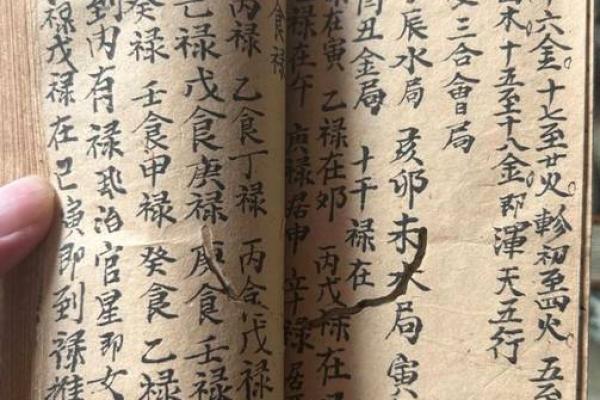 六金 十七至廿火 軫初至四火 五至
木 十五至十八金 即渾天五行
三合會局
辰水局 亥卯未水局 寅
丑金局 十干禄在
禄在寅 乙禄在卯 丙戊禄在
禄在午 庚禄居申 辛禄居
食禄
丙禄 乙食丁禄 丙食戊禄
己禄 戊食庚禄 庚食壬禄
癸禄 壬食申禄 癸食乙禄
到内有禄 治官星即女
禄戊禄在己寅即到禄推